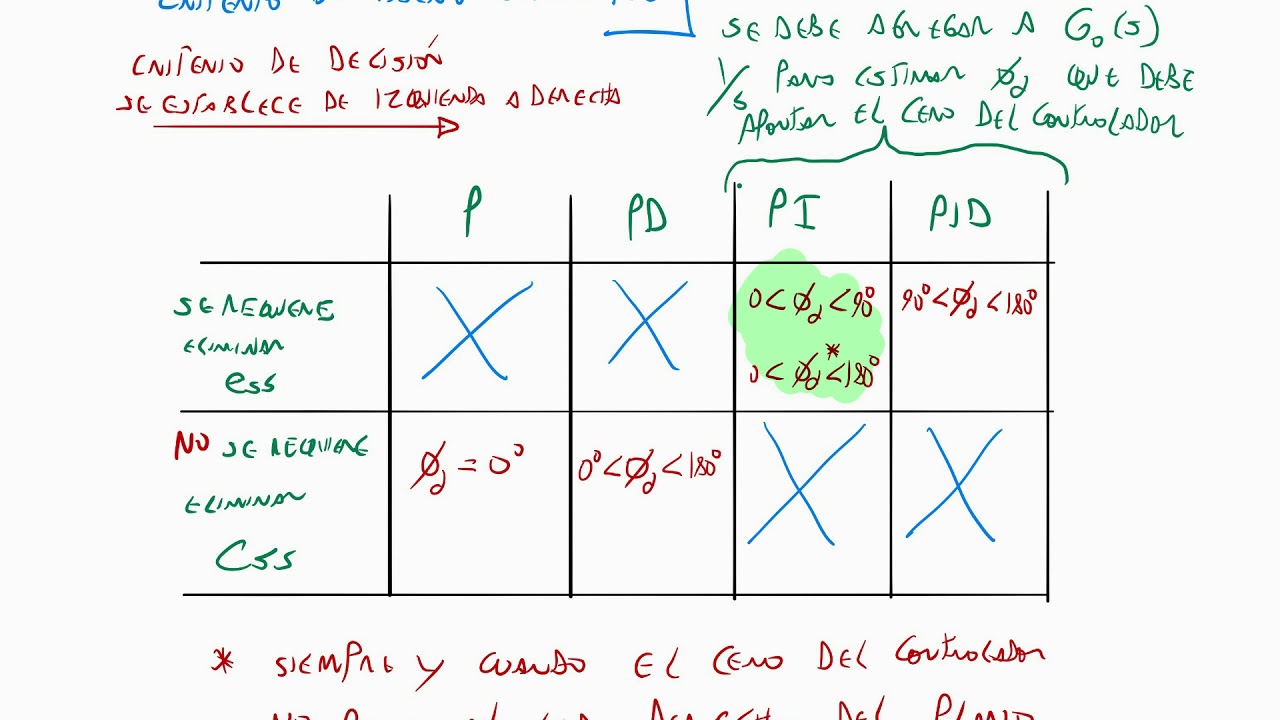 CRITERIO DE
CRITERIO DE DECISIÓN
SE ESTABLECE DE IZQUIERDA A DERECHA
SE DEBE AGREGAR A G₀(s)
1/s PARA ESTIMAR ϕd QUE DEBE
APORTAR EL CERO DEL CONTROLADOR
P PD PI PID
SE REQUIERE
ELIMINAR
ess
0 < ϕd < 90°
0 < ϕd* < 180°
90° < ϕd < 180°
NO SE REQUIERE
ELIMINAR
ess
ϕd = 0°
0° < ϕd < 180°
* SIEMPRE Y CUANDO EL CERO DEL CONTROLADOR
DEL PLANO